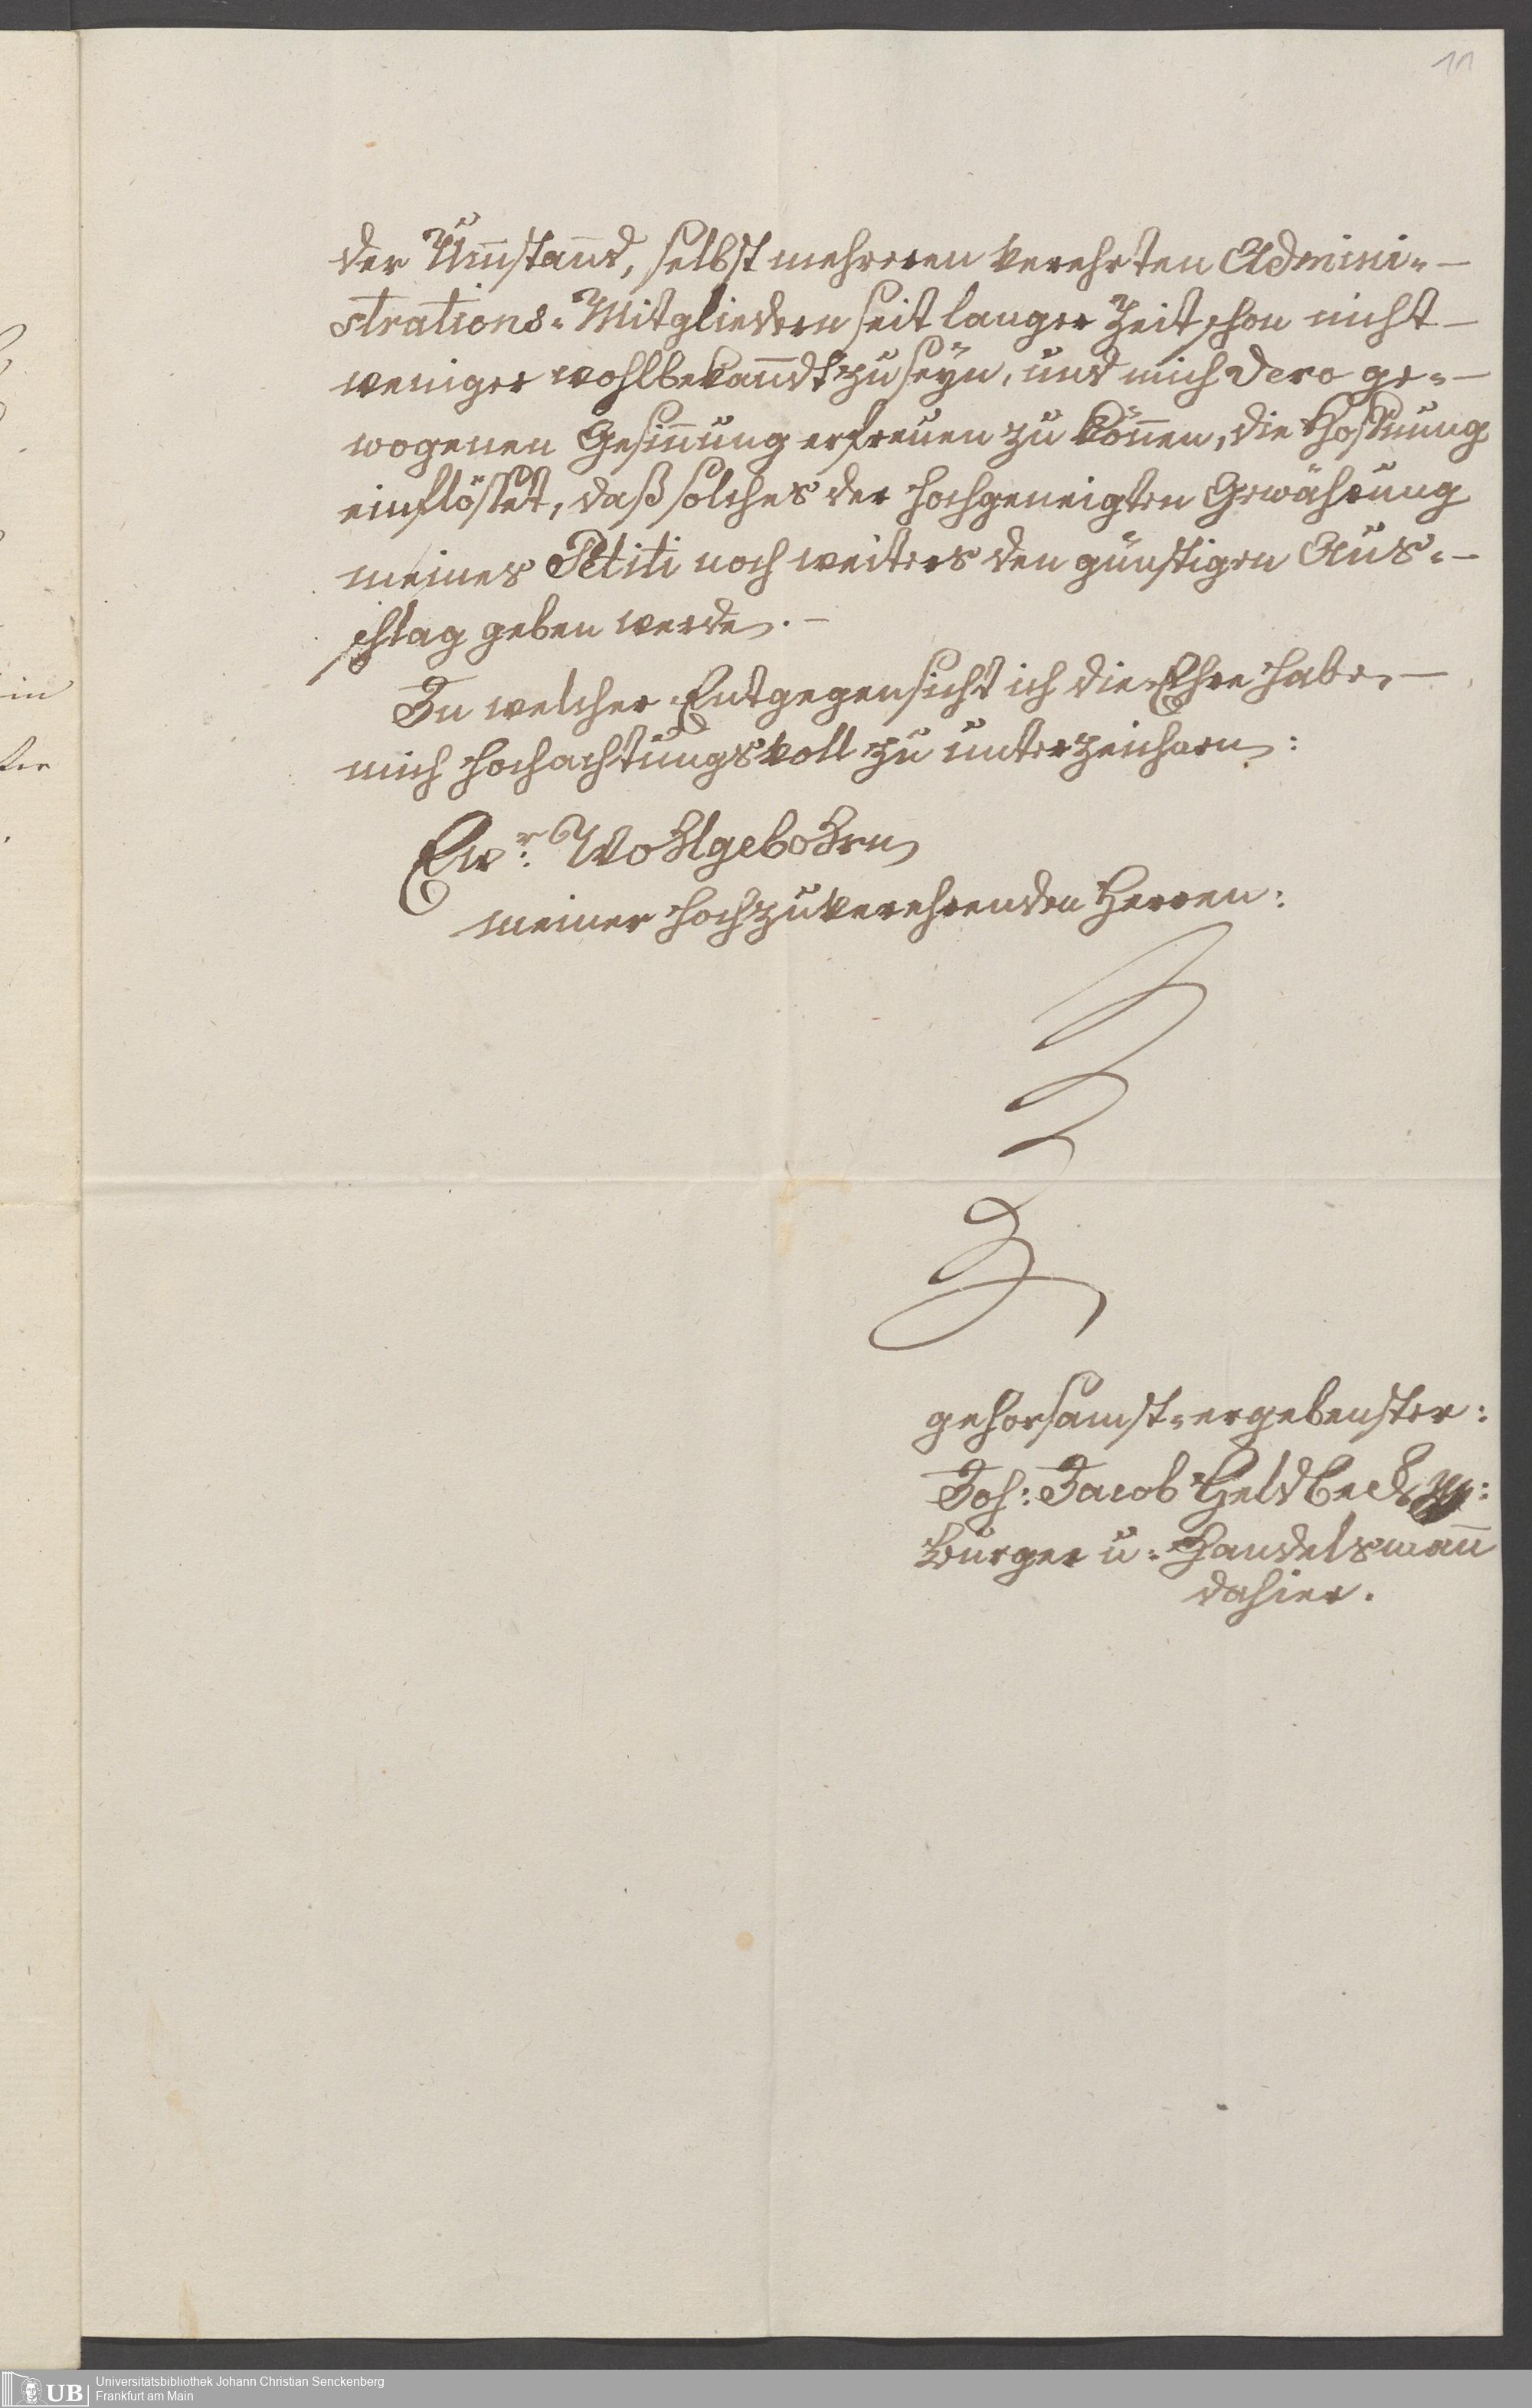 11
der Um̅stan̅d, selbst mehreren verehrten Admini=
strations=Mitgliedern seit langer Zeit schon nicht
weniger wohlbekan̅dt zu seÿn, und mich Dero ge=
wogenen Gesin̅ung erfreuen zu kön̅en, die Hoffnung
einflösset, daß solches der hochgeneigten Gewährung
meines Petiti noch weiters den günstigen Aus=
schlag geben werde.
In welcher Entgegensicht ich die Ehre habe,
mich hochachtungsvoll zu unterzeichnen:
Ewr: Wohlgebohrn
meiner hochzuverehrenden Herren:
gehorsamst=ergebenster:
Joh: Jacob Heldbeck
Burger u: Handelsman̅
dahier.
in
UB
Universitätsbibliothek Johann Christian Senckenberg
Frankfurt am Main